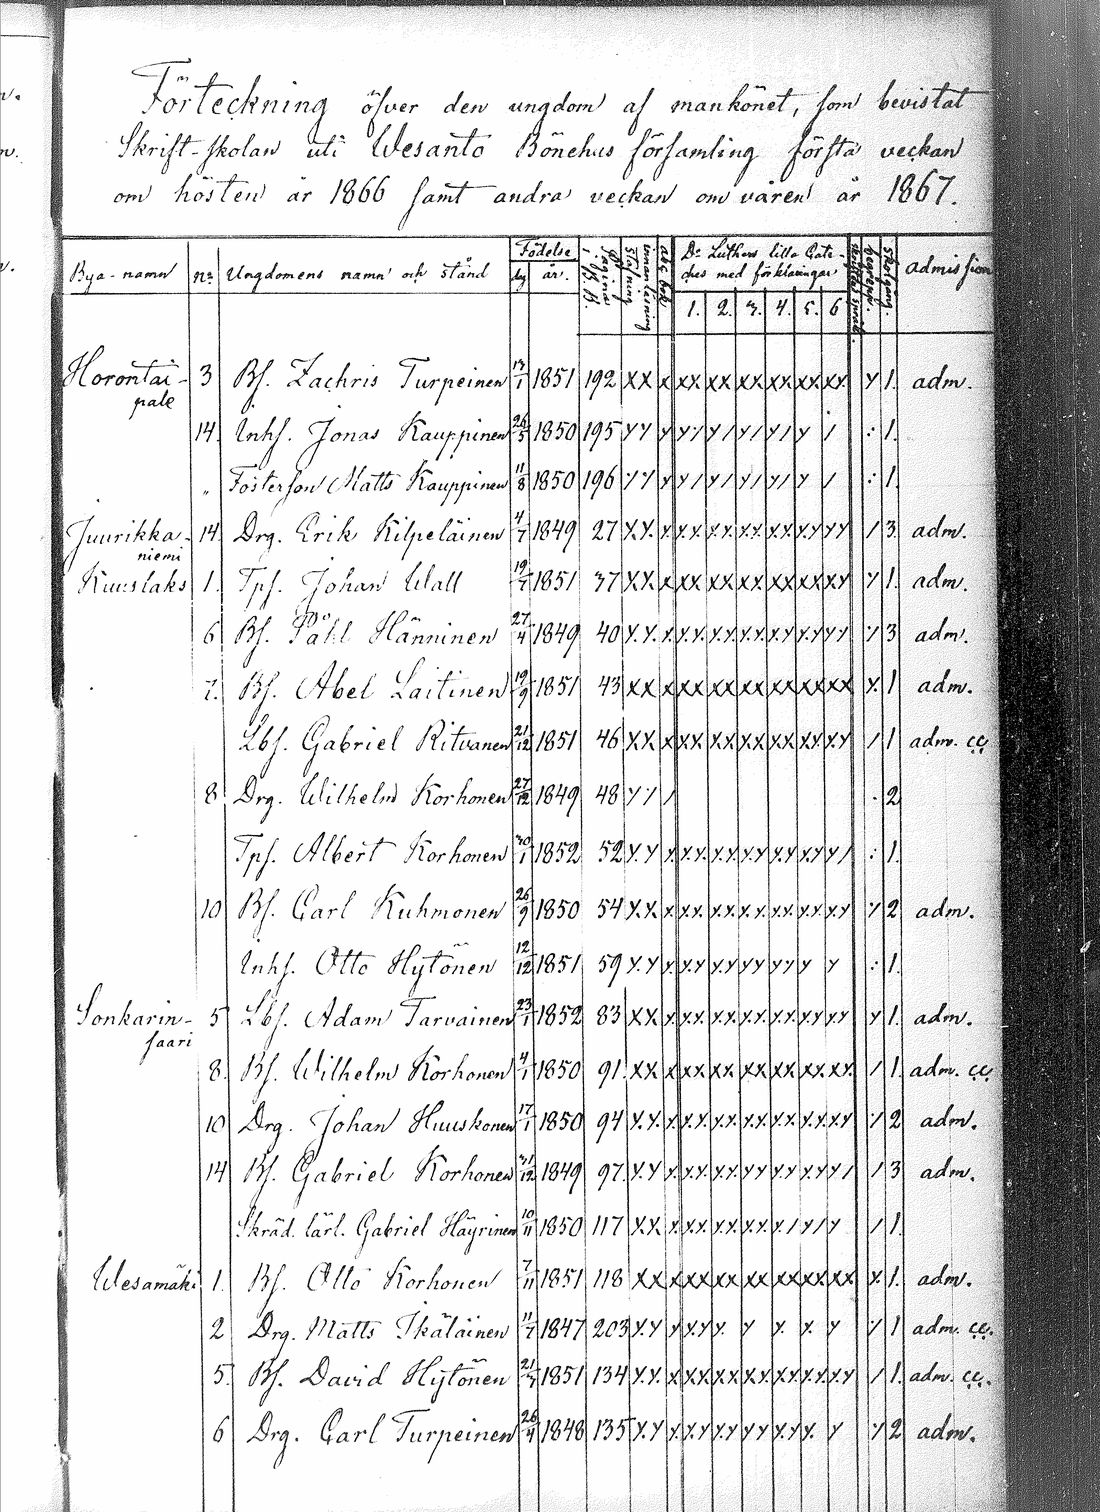 Förteckning öfver den ungdom af mankönet, som bevistat
Skrift-skolan uti Wesanto Bönehus församling första veckan
om hösten år 1866 samt andra veckan om våren år 1867.
Bya-namn No Ungdomens namn och stånd Födelse dag år. Pagina i S.B. Stafning innanläsning abc bok Dr Luthers lilla Cate- Skolgång admission
ches med förklaringar
1. 2. 3. 4. 5. 6
Horontai- 3 Bs. Zachris Turpeinen 13/1 1851 192 xx x xx xx xx xx xx xx. y 1. adm.
pale
14. Inhs. Jonas Kauppinen 26/5 1850 195 yy y y/ y/ y/ y/ y / : 1.
„ Fosterson Matts Kauppinen 11/8 1850 196 yy y y/ y/ y/ y/ y / : 1.
Juurikka- 14. Drg. Erik Kilpeläinen 4/7 1849 27 x.x. x x.x. x.x. x.x. x.x. xy yy / 3. adm.
niemi
Kuuslaks 1. Tps. Johan Wall 19/7 1851 37 xx x xx xx xx xx xx xy y 1. adm.
6 Bs. Påhl Hänninen 27/4 1849 40 y.y. x y.y. y.y. y.y. y.y y.y yy y 3 adm.
7. Bs. Abel Laitinen 19/9 1851 43 xx x xx xx xx xx xx xx x. 1 adm.
Lbs. Gabriel Ritvanen 21/12 1851 46 xx x xx xx xx xx xx x.y / 1 adm. cc.
8 Drg. Wilhelm Korhonen 27/12 1849 48 y / / . 2
Tps. Albert Korhonen 30/1 1852 52 y.y y.y. y.y. y.y. y.y xy y/ : 1.
10 Bs. Carl Kuhmonen 26/9 1850 54 y.x. x x.x. x.x. x.x. x.x. x.x. x.y y 2 adm.
Inhs. Otto Hytönen 12/12 1851 59 y.y x x.y y.y yy yy y y : 1.
Sonkarin- 5 Lbs. Adam Tarvainen 23/1 1852 83 xx x x.x. x.x. x.x. x.x. x.x. xy y 1. adm.
saari
8. Bs. Wilhelm Korhonen 4/1 1850 91. xx x xx xx xx xx xx xy. / 1. adm. cc.
10 Drg. Johan Huuskonen 17/1 1850 94 y.y. x y.x. y.x. y.x. y.x. y.x. yy y 2 adm.
14 Bs. Gabriel Korhonen 31/12 1849 97. y.y x y.x. y.x. yy yy xy y/ / 3 adm.
Skräd. lärl. Gabriel Häyrinen 10/11 1850 117 xx x x.x. x.x. x.x. x/ y/ y / 1.
Wesamäki 1. Bs. Otto Korhonen 7/11 1851 118 xx x xx xx xx xx xx xx x. 1. adm.
2 Drg. Matts Ikäläinen 11/7 1847 203 x.y y x.y y. y y. x. y y 1 adm. cc.
5. Bs. David Hytönen 21/7 1851 134 y.y. x xx xx xx xx x.y. x.y / 1. adm. cc.
6 Drg. Carl Turpeinen 26/4 1848 135 y.y x y.y y.y yy yy. y. y y 2 adm.